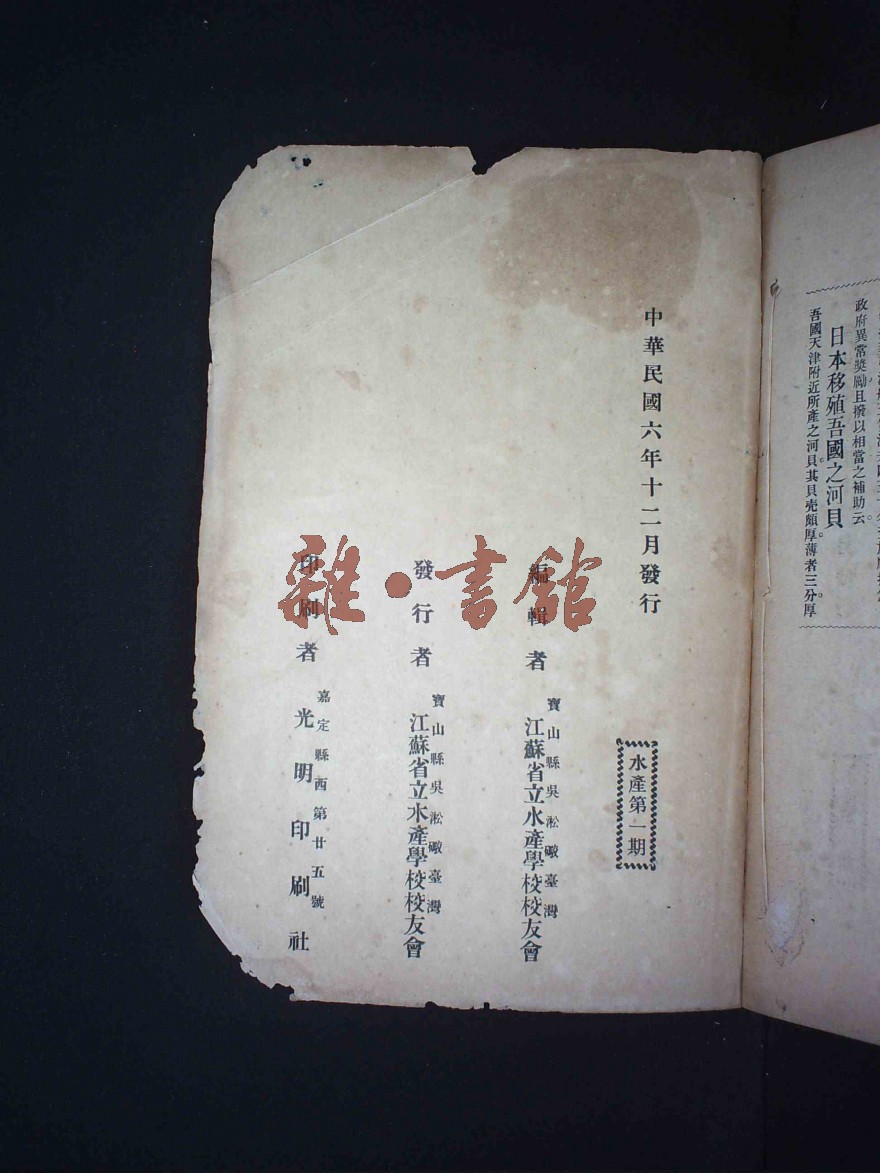 政府異常奬勵且撥以相當之補助云。
日本移殖吾國之河貝
吾國天津附近所產之河貝其貝壳頗厚薄者三分厚
中華民國六年十二月發行
水產第一期
編輯者
寶山縣吳淞礮臺灣
江蘇省立水產學校校友會
發行者
寶山縣吳淞礮臺灣
江蘇省立水產學校校友會
印刷者
嘉定縣西第廿五號
光明印刷社
雜·書館